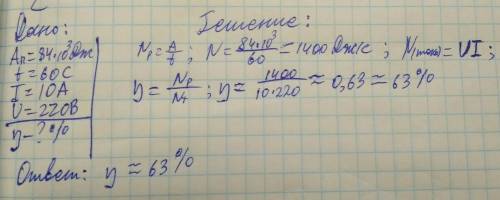 Дано:
Aп=84·10³Дж
t=60С
I=10А
U=220В
η-?%
Решение:
Nр=A/t; N=84·10³/60=1400 Дж/с; N(полн)=UI;
η=Nр/Nт; η=1400/10·220≈0,63≈63%
Ответ: η≈63%